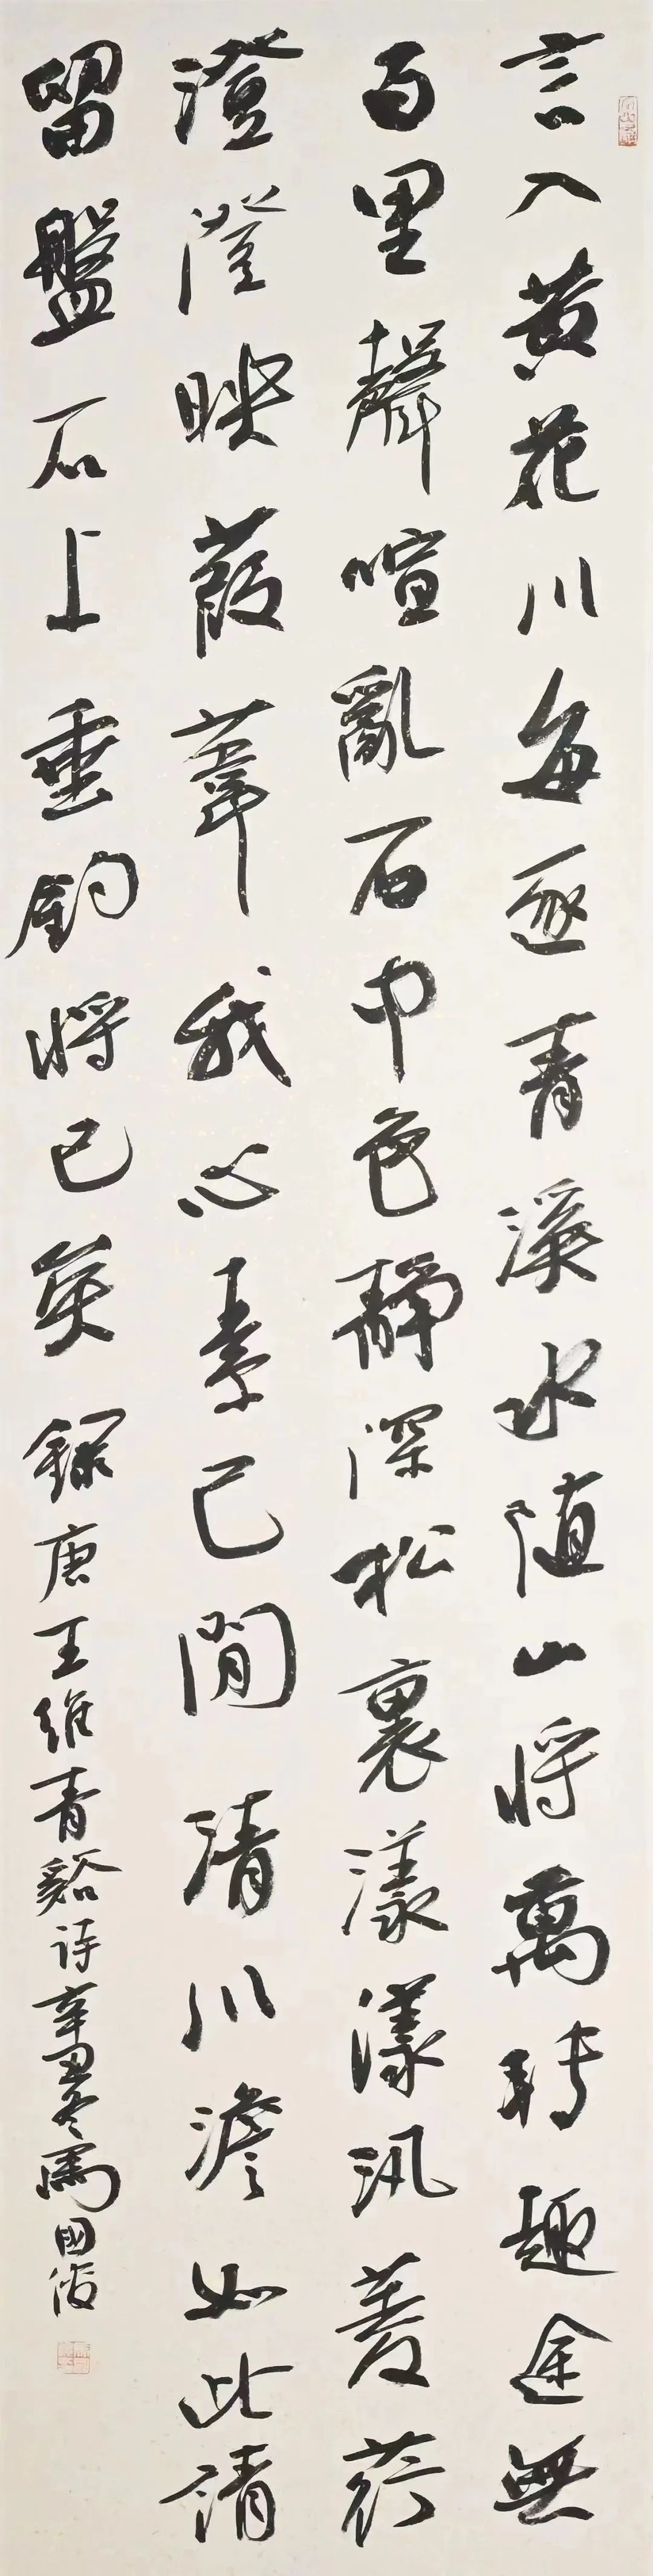 言入黃花川每逐青溪水隨山將萬轉趣途無
百里聲喧亂石中色靜深松裏漾漾汎菱荇
澄澄映葭葦我心素已閒清川澹如此請
留盤石上垂釣將已矣 錄唐王維青谿詩辛丑冬馬國俊